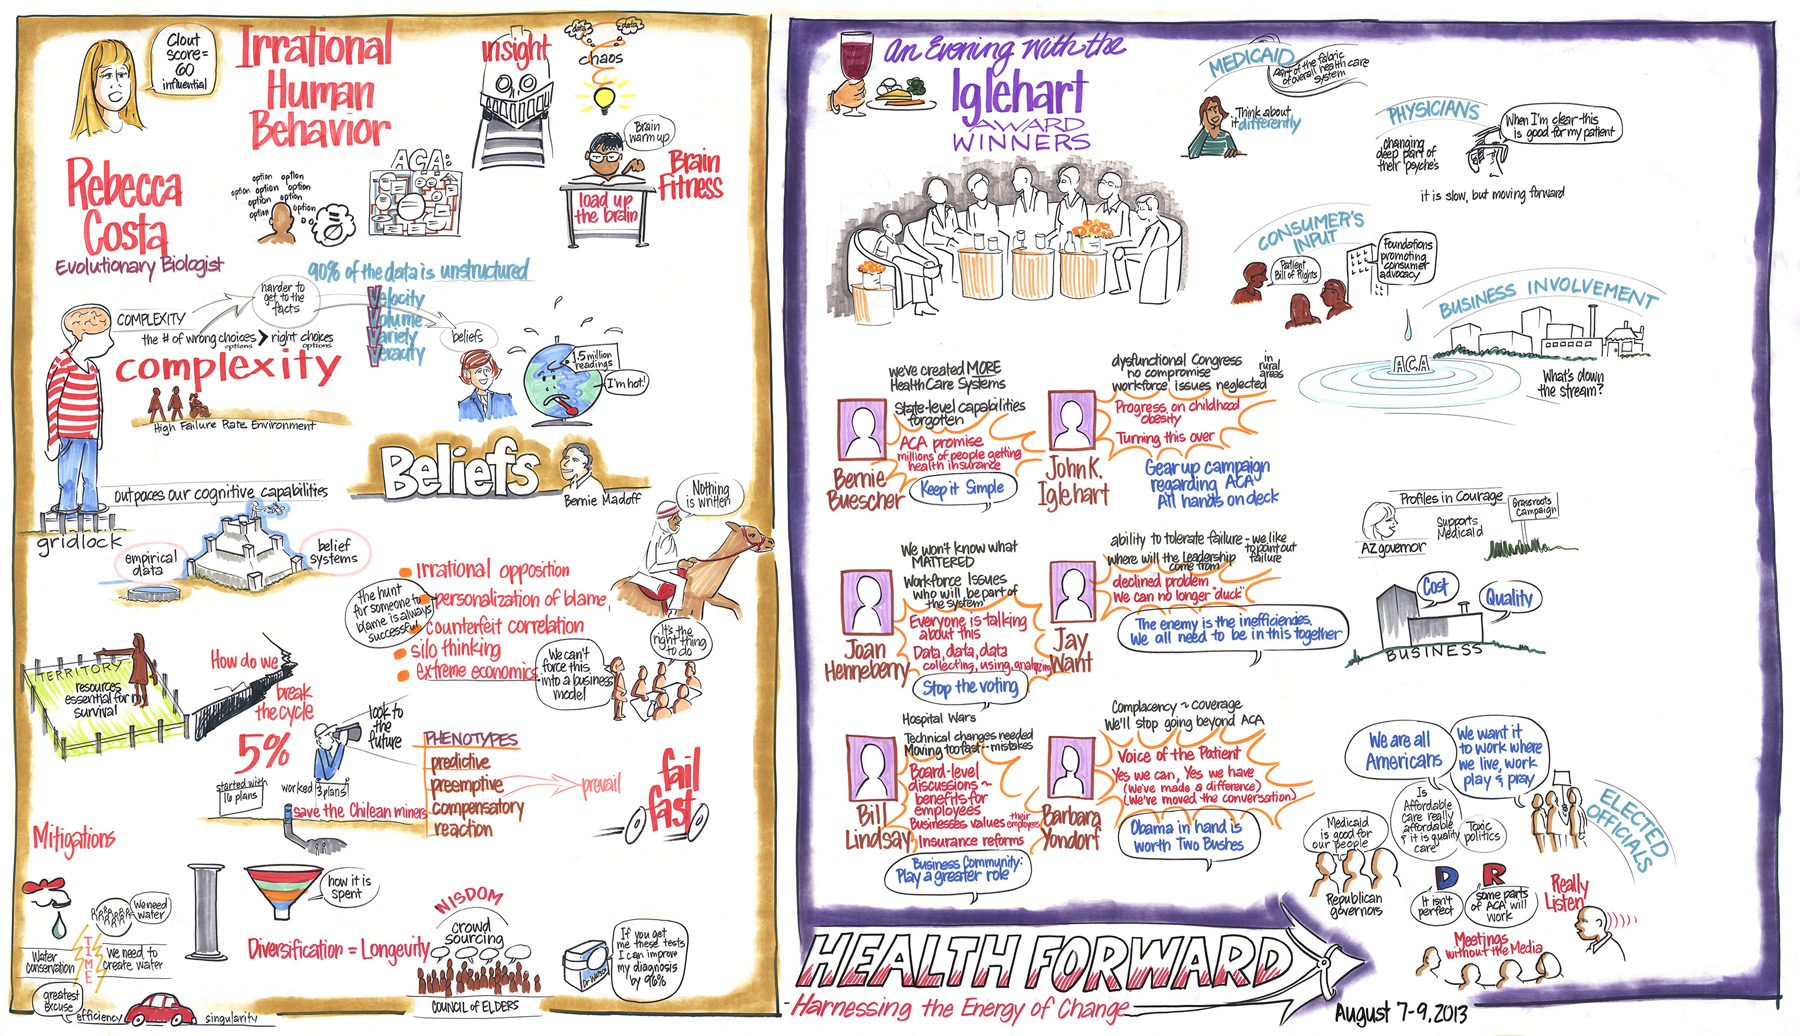 Clout
score =
60
influential
Irrational
Human
Behavior
insight
data
data
chaos
Brain
warm up
Brain
Fitness
load up
the brain
Rebecca
Costa
Evolutionary Biologist
option
option
option
option
option
option
option
option
ACA:
90% of the data is unstructured
Velocity
Volume
Variety
Veracity
harder to
get to the
facts
beliefs
COMPLEXITY
the # of wrong choices > right choices
options
options
complexity
High Failure Rate Environment
1.5 million
readings
I'm hot!
Beliefs
Bernie Madoff
outpaces our cognitive capabilities
gridlock
empirical
data
belief
systems
Nothing
is written
the hunt
for someone to
blame is always
successful
irrational opposition
personalization of blame
counterfeit correlation
silo thinking
extreme economics
We can't
force this
into a business
model
It's the
right thing
to do
TERRITORY
resources
essential for my
survival
How do we
break
the cycle
5%
started with
16 plans
worked
3 plans
look to
the
future
save the Chilean miners
PHENOTYPES
predictive
preemptive
compensatory
reaction
prevail
fail
fast
Mitigations
We need
water
Water
conservation
TIME
We need to
create water
how it is
spent
Diversification = Longevity
NISDOM
crowd
sourcing
COUNCIL of ELDERS
Dr WATSON
If you get
me these tests
I can improve
my diagnosis
by 96%
greatest
excuse
efficiency
singularity
An Evening with the
Iglehart
AWARD
WINNERS
MEDICAID
part of the fabric
of overall health care
system
Think about
it differently
PHYSICIANS
changing
deep part of
their psyches
When I'm clear - this
is good for my patient
it is slow, but moving forward
CONSUMER'S
INPUT
Patient
Bill of Rights
Foundations
promoting
consumer
advocacy
BUSINESS INVOLVEMENT
ACA
What's down
the stream?
we've created MORE
Health Care Systems
State-level capabilities
forgotten
ACA promise
millions of people getting
health insurance
Keep it Simple
Bernie
Buescher
dysfunctional Congress
no compromise
workforce issues neglected
in
rural
areas
Progress on childhood
obesity
Turning this over
John K.
Iglehart
Gear up campaign
regarding ACA
All hands on deck
We won't know what
MATTERED
Workforce Issues
who will be part of
the system
Everyone is talking
about this
Data, data, data
collecting, using, analyzing
Stop the voting
Joan
Henneberry
ability to tolerate failure - we like
to point out
failure
where will the leadership
come from
declined problem
We can no longer "duck"
The enemy is the inefficiencies.
We all need to be in this together
Jay
Want
Hospital Wars
Technical changes needed
Moving too fast - mistakes
Board-level
discussions ~
benefits for
employees
Businesses values their
employees
Insurance reforms
Business Community:
Play a greater role
Bill
Lindsay
Complacency ~ coverage
We'll stop going beyond ACA
Voice of the Patient
Yes we can, Yes we have
(We've made a difference)
(We've moved the conversation)
Obama in hand is
worth Two Bushes
Barbara
Yondorf
Profiles in Courage
AZ governor
Supports
Medicaid
Grassroots
Campaign
Cost
Quality
BUSINESS
We are all
Americans
We want it
to work where
we live, work
play & pray
Medicaid
is good for
our people
Is
Affordable
care really
affordable
& it is quality
care
Toxic
politics
ELECTED
OFFICIALS
Republican
governors
D
It isn't
perfect
R
some parts
of ACA will
work
Really
Listen
Meetings
without the Media
HEALTH FORWARD
Harnessing the Energy of Change
August 7-9, 2013